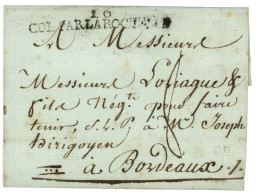 10
COL. PAR LA ROCHELLE
A Messieurs
Messieurs Loriague &
fils Négts pour faire
tenir, S.L.P. à Mr. Joseph
Dirigoyen
à Bordeaux ./.